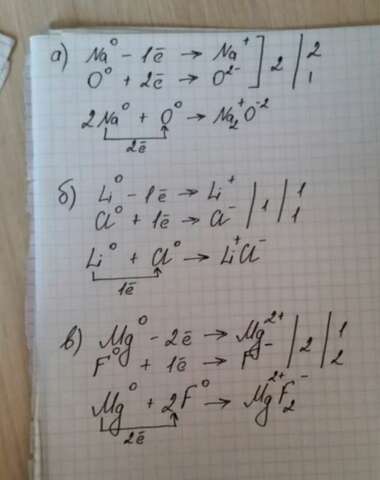 а) Na⁰ - 1ē → Na⁺ ] 2 | 2
O⁰ + 2ē → O²⁻ ] 2 | 1
2Na⁰ + O⁰ → Na₂⁺O⁻²
2ē
б) Li⁰ - 1ē → Li⁺ | 1 | 1
Cl⁰ + 1ē → Cl⁻ | 1 | 1
Li⁰ + Cl⁰ → Li⁺Cl⁻
1ē
в) Mg⁰ - 2ē → Mg²⁺ | 2 | 1
F⁰ + 1ē → F⁻ | 2 | 2
Mg⁰ + 2F⁰ → Mg²⁺F₂⁻
2ē